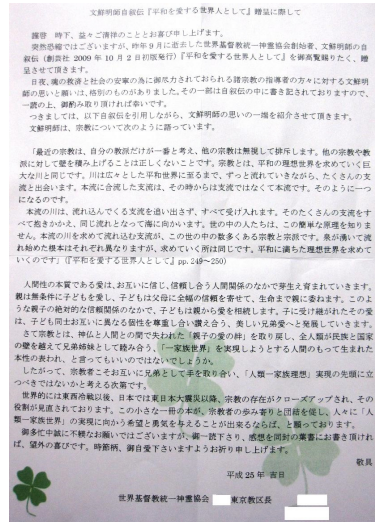 文鮮明師自叙伝『平和を愛する世界人として』贈呈に際して
謹啓　時下、益々ご清祥のこととお喜び申し上げます。
突然恐縮ではございますが、昨年9月に逝去した世界基督教統一神霊協会創始者、文鮮明師の自
叙伝（創芸社 2009年10月2日初版発行）『平和を愛する世界人として』を御高覧賜りたく、贈
呈させて頂きます。
日夜、魂の救済と社会の安寧の為に御尽力されておられる諸宗教の指導者の方々に対する文鮮明
師の思いと願いは、格別のものがありました。その一部は自叙伝の中に書き記されておりますので、
一読の上、御酌み取り頂ければ幸いです。
つきましては、以下自叙伝を引用しながら、文鮮明師の思いの一端を紹介させて頂きます。
文鮮明師は、宗教について次のように語っています。
「最近の宗教は、自分の教派だけが一番と考え、他の宗教は無視して排斥します。他の宗教や教
派に対して壁を積み上げることは正しくないことです。宗教とは、平和の理想世界を求めていく巨
大な川と同じです。川は広々とした平和世界に至るまで、ずっと流れていきながら、たくさんの支
流と出会います。本流に合流した支流は、その時からは支流ではなくて本流です。そのように一つ
になるのです。
本流の川は、流れ込んでくる支流を追い出さず、すべて受け入れます。そのたくさんの支流をす
べて抱きかかえ、同じ流れとなって海に向かいます。世の中の人たちは、この簡単な原理を知りま
せん。本流の川を求めて流れ込む支流が、この世の中の数多くある宗教と宗派です。泉が湧いて流
れ始めた根本はそれぞれ異なりますが、求めていく所は同じです。平和に満ちた理想世界を求めて
いくのです」（『平和を愛する世界人として』pp.249～250）
人間性の本質である愛は、お互いに信じ、信頼し合う人間関係のなかで芽生え育まれていきます。
親は無条件に子どもを愛し、子どもは父母に全幅の信頼を寄せて、生命まで親に委ねます。このよ
うな親子の絶対的な信頼関係のなかで、子どもは親から愛を相続します。子に受け継がれたその愛
は、子ども同士お互いに異なる個性を尊重し合い讃え合う、美しい兄弟愛へと発展していきます。
さて宗教とは、神仏と人間との間で失われた「親子の愛の絆」を取り戻し、全人類が民族と国家
の壁を越えて兄弟姉妹として睦み合う、「一家族世界」を実現しようとする人間のもって生まれた
本性の表われ、と言ってもいいのではないでしょうか。
したがって、宗教者こそお互いに兄弟として手を取り合い、「人類一家族理想」実現の先頭に立
つべきではないかと考える次第です。
世界的には東西冷戦以後、日本では東日本大震災以降、宗教の存在がクローズアップされ、その
役割が見直されております。この小さな一冊の本が、宗教者の歩み寄りと団結を促し、人々に「人
類一家族世界」の実現に向かう希望と勇気を与えることが出来るならば、と願っております。
御多忙中誠に不躾なお願いではございますが、御一読下さり、感想を同封の葉書にお書き頂けれ
ば、望外の喜びです。時節柄、御自愛下さいますようお祈り申し上げます。
敬具
平成25年 吉日
世界基督教統一神霊協会　東京教区長